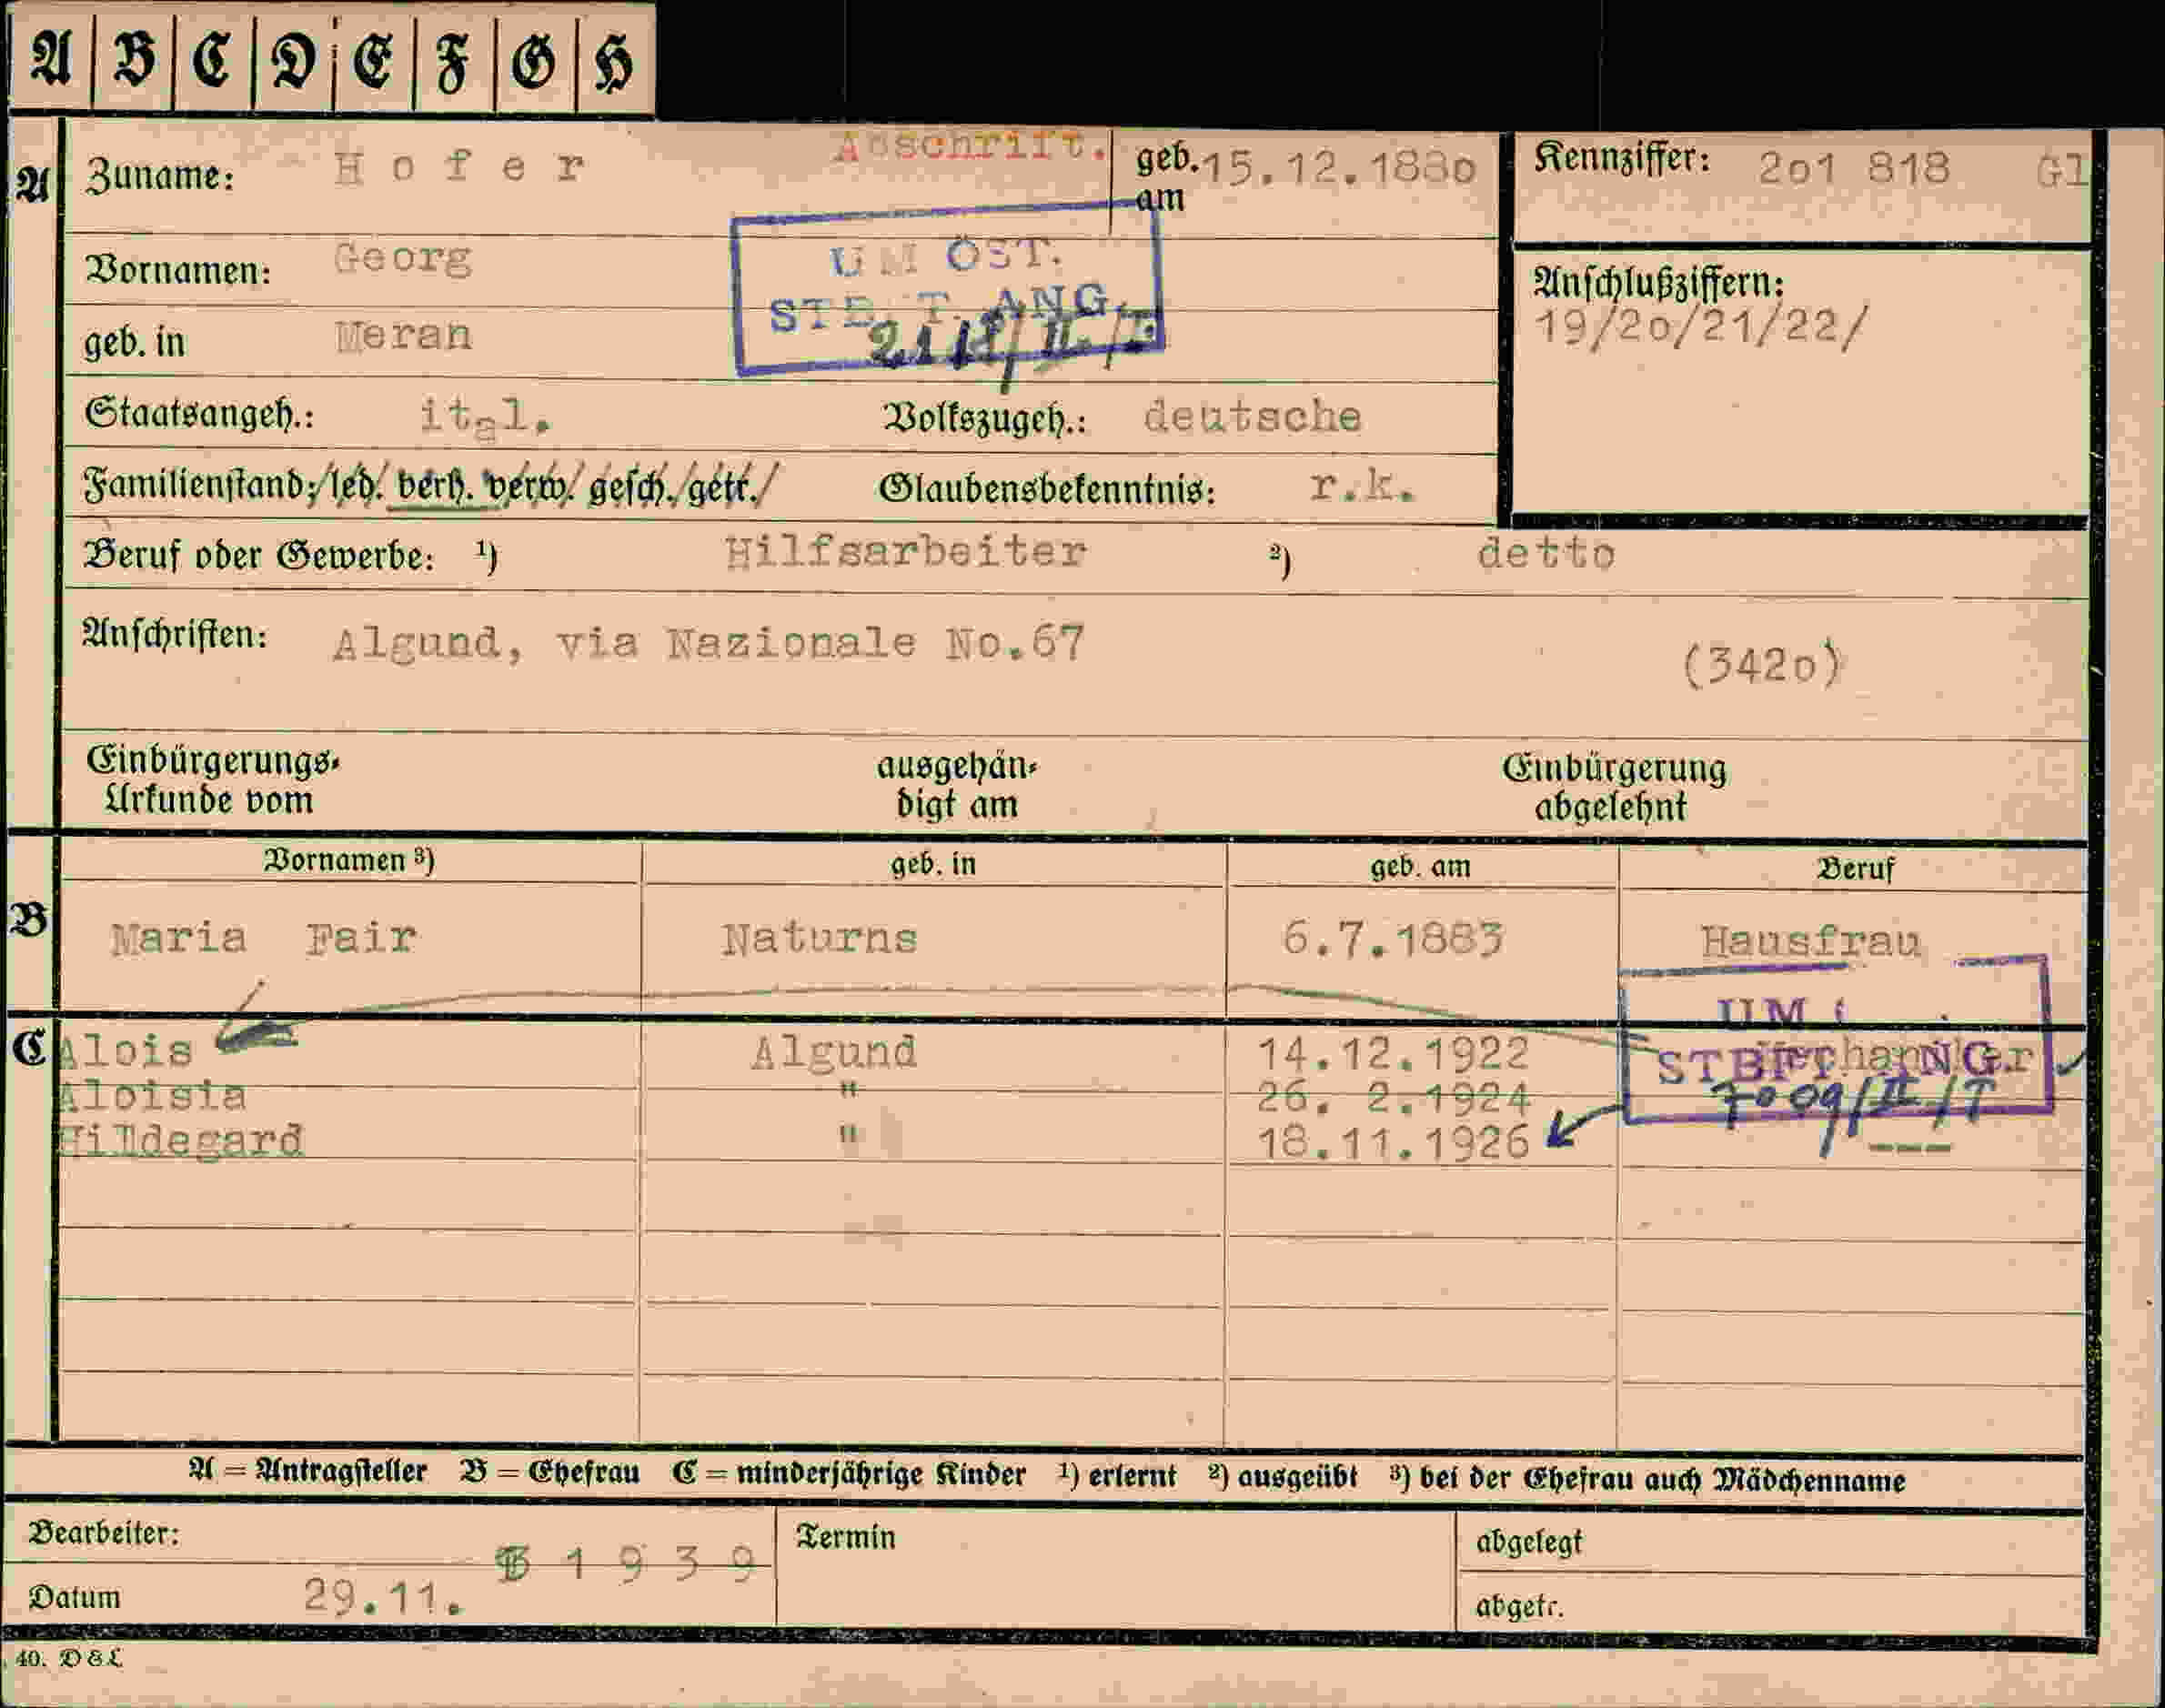 A B C D E F G H
Abschrift.
A Zuname: Hofer geb. am 15.12.1880 Kennziffer: 2o1 818 Gl
UM ÖST.
Vornamen: Georg
STB T. ANG.
Anschlußziffern:
19/2o/21/22/
geb. in Meran
Staatsangeh.: ital. Volkszugeh.: deutsche
Familienstand: led. verh. verw. gesch. getr. Glaubensbekenntnis: r.k.
Beruf oder Gewerbe: ¹) Hilfsarbeiter ²) detto
Anschriften: Algund, via Nazionale No.67
(342o)
Einbürgerungs- ausgehän- Einbürgerung
Urkunde vom digt am abgelehnt
Vornamen ³) geb. in geb. am Beruf
B Maria Fair Naturns 6.7.1883 Hausfrau
UM
C Alois Algund 14.12.1922
STB ANG.
Aloisia " 26. 2.1924
7009/II/T
Hildegard " 18.11.1926 ---
A = Antragsteller B = Ehefrau C = minderjährige Kinder ¹) erlernt ²) ausgeübt ³) bei der Ehefrau auch Mädchenname
Bearbeiter: Termin abgelegt
1939
Datum 29.11. abgetr.
40. D & L